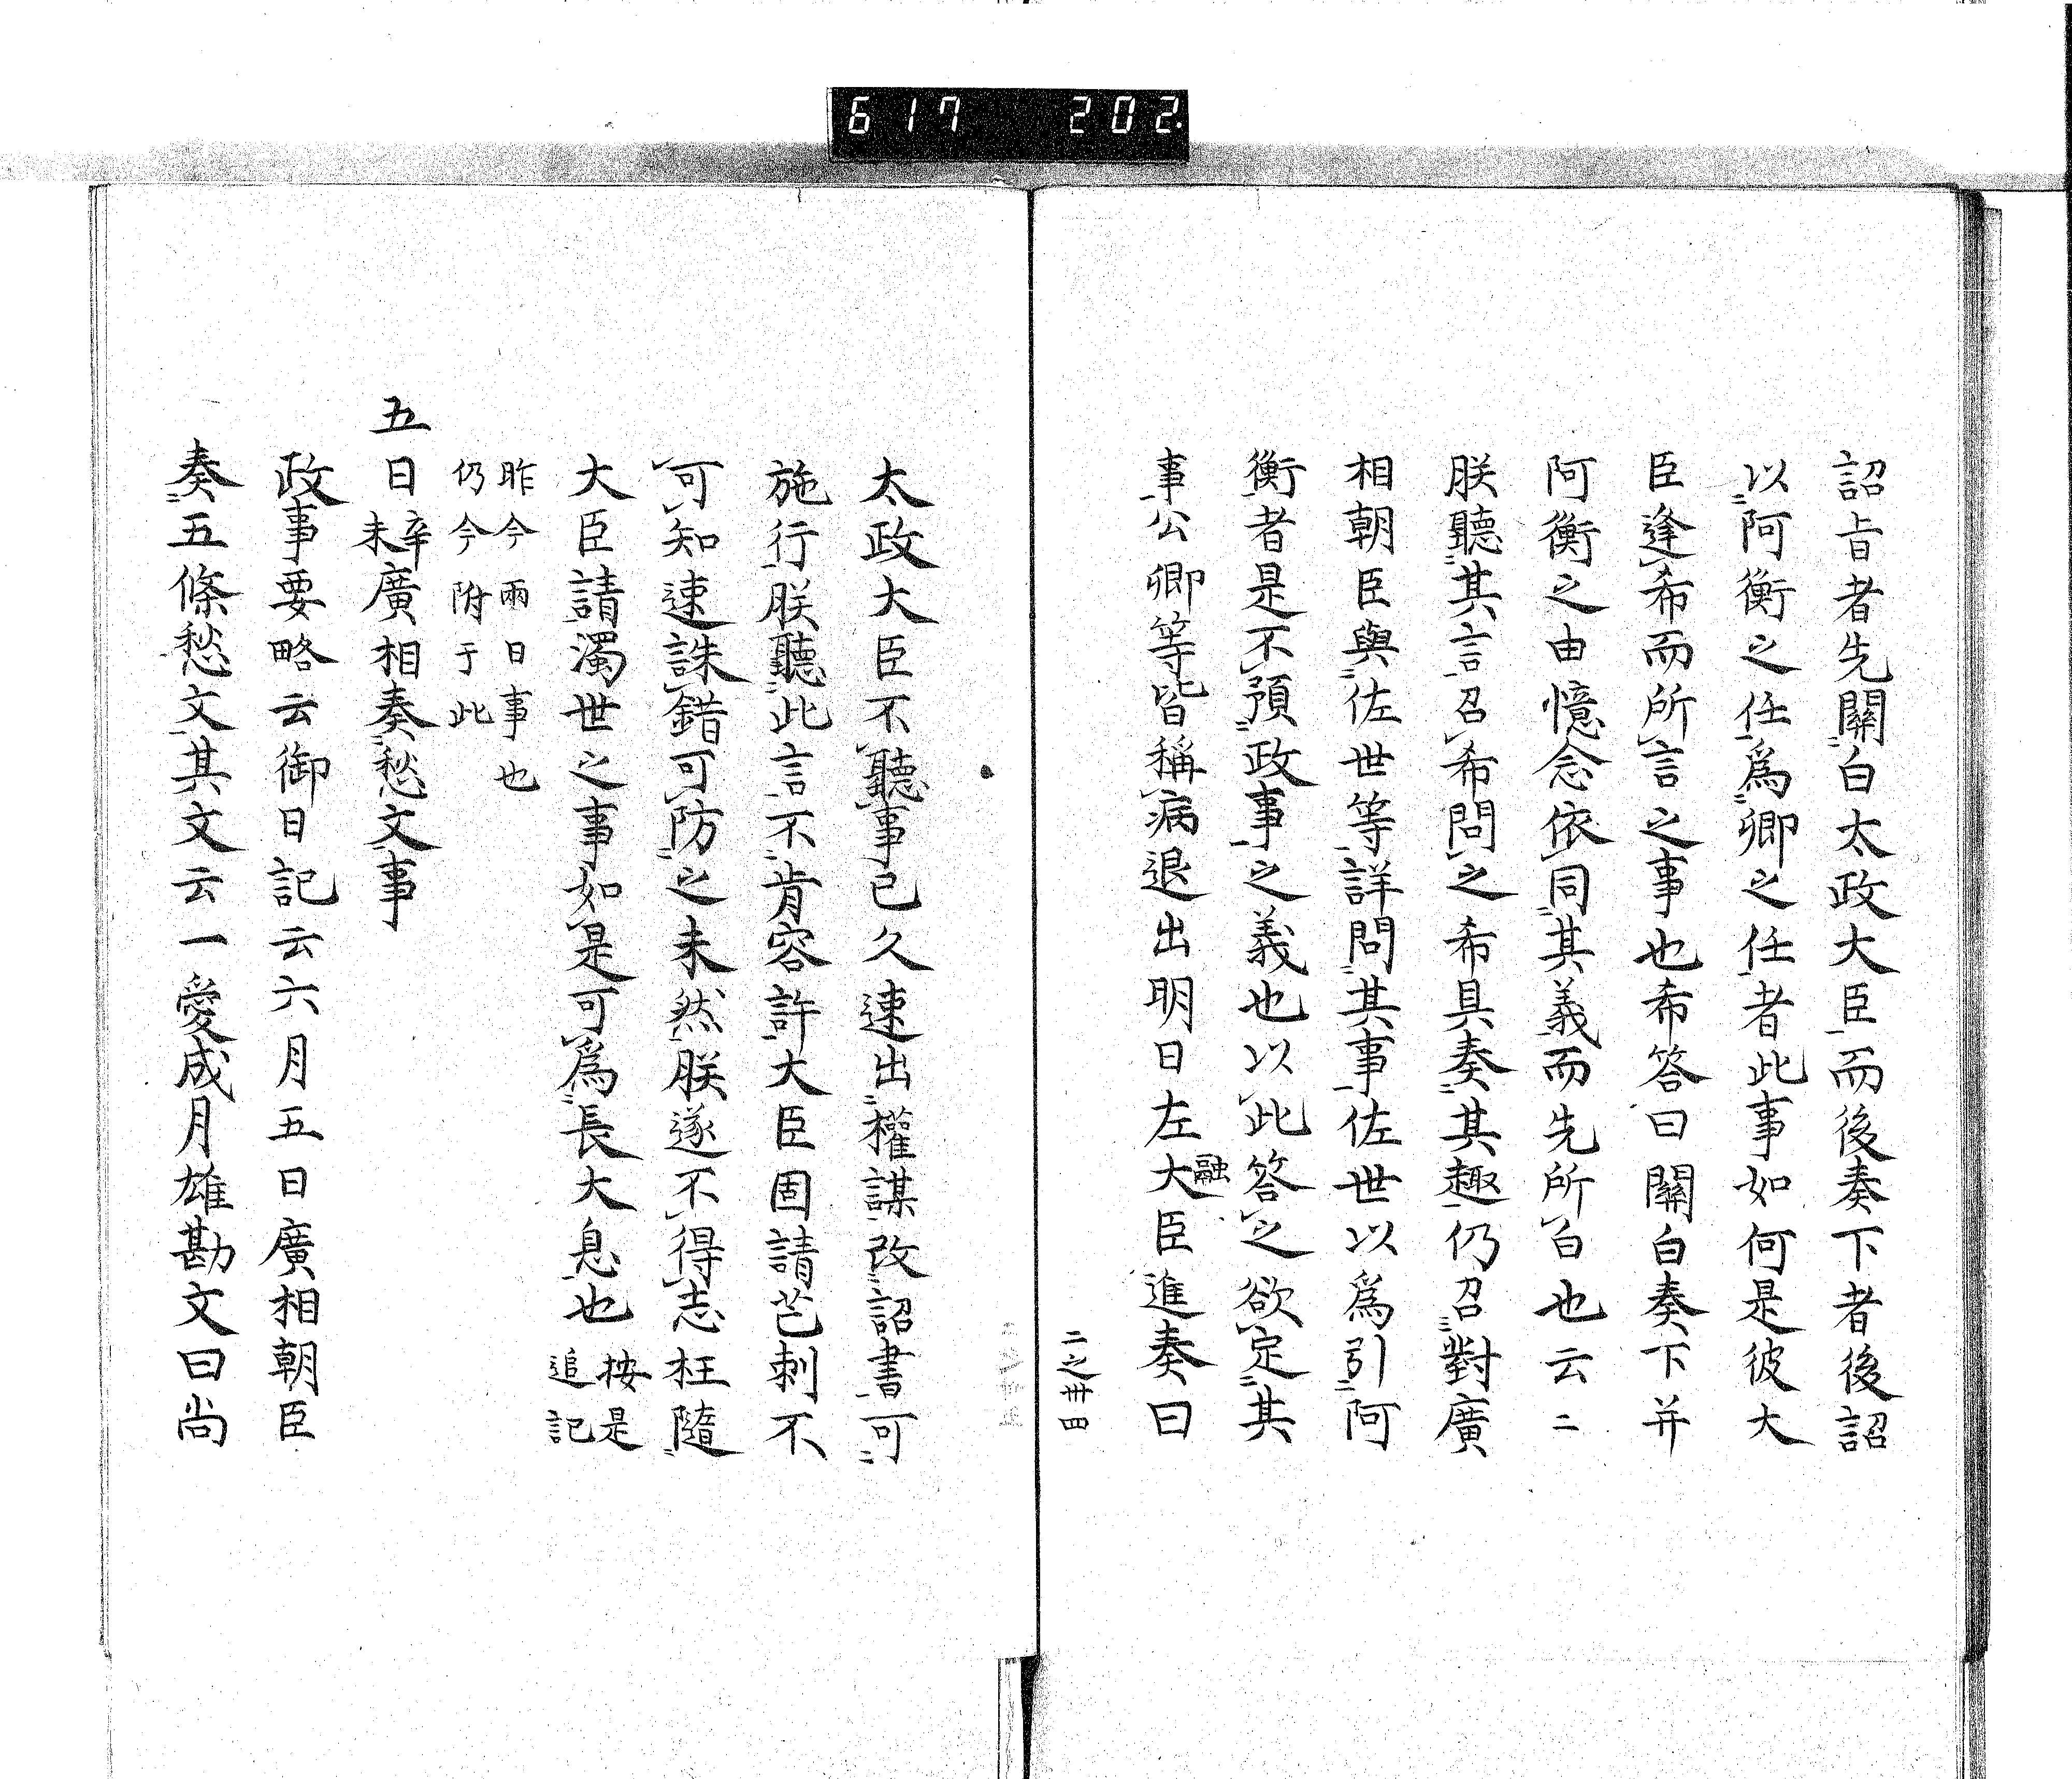 617 202.
詔旨者先關白太政大臣而後奏下者後詔
以阿衡之任爲卿之任者此事如何是彼大
臣逢希而所言之事也希答曰關白奏下并
阿衡之由憶念依同其義而先所白也云二
朕聽其言召希問之希具奏其趣仍召對廣
相朝臣與佐世等詳問其事佐世以爲引阿
衡者是不預政事之義也以此答之欲定其
事公卿等皆稱病退出明日左大臣進奏曰
融
二之卅四
太政大臣不聽事已久速出權謀改詔書可
施行朕聽此言不肯容許大臣固請芒刺不
可知速誅錯可防之未然朕遂不得志枉隨
大臣請濁世之事如是可爲長大息也
按是
追記
昨今兩日事也
仍今附于此
五日辛未廣相奏愁文事
政事要略云御日記云六月五日廣相朝臣
奏五條愁文其文云一愛成月雄勘文曰尚